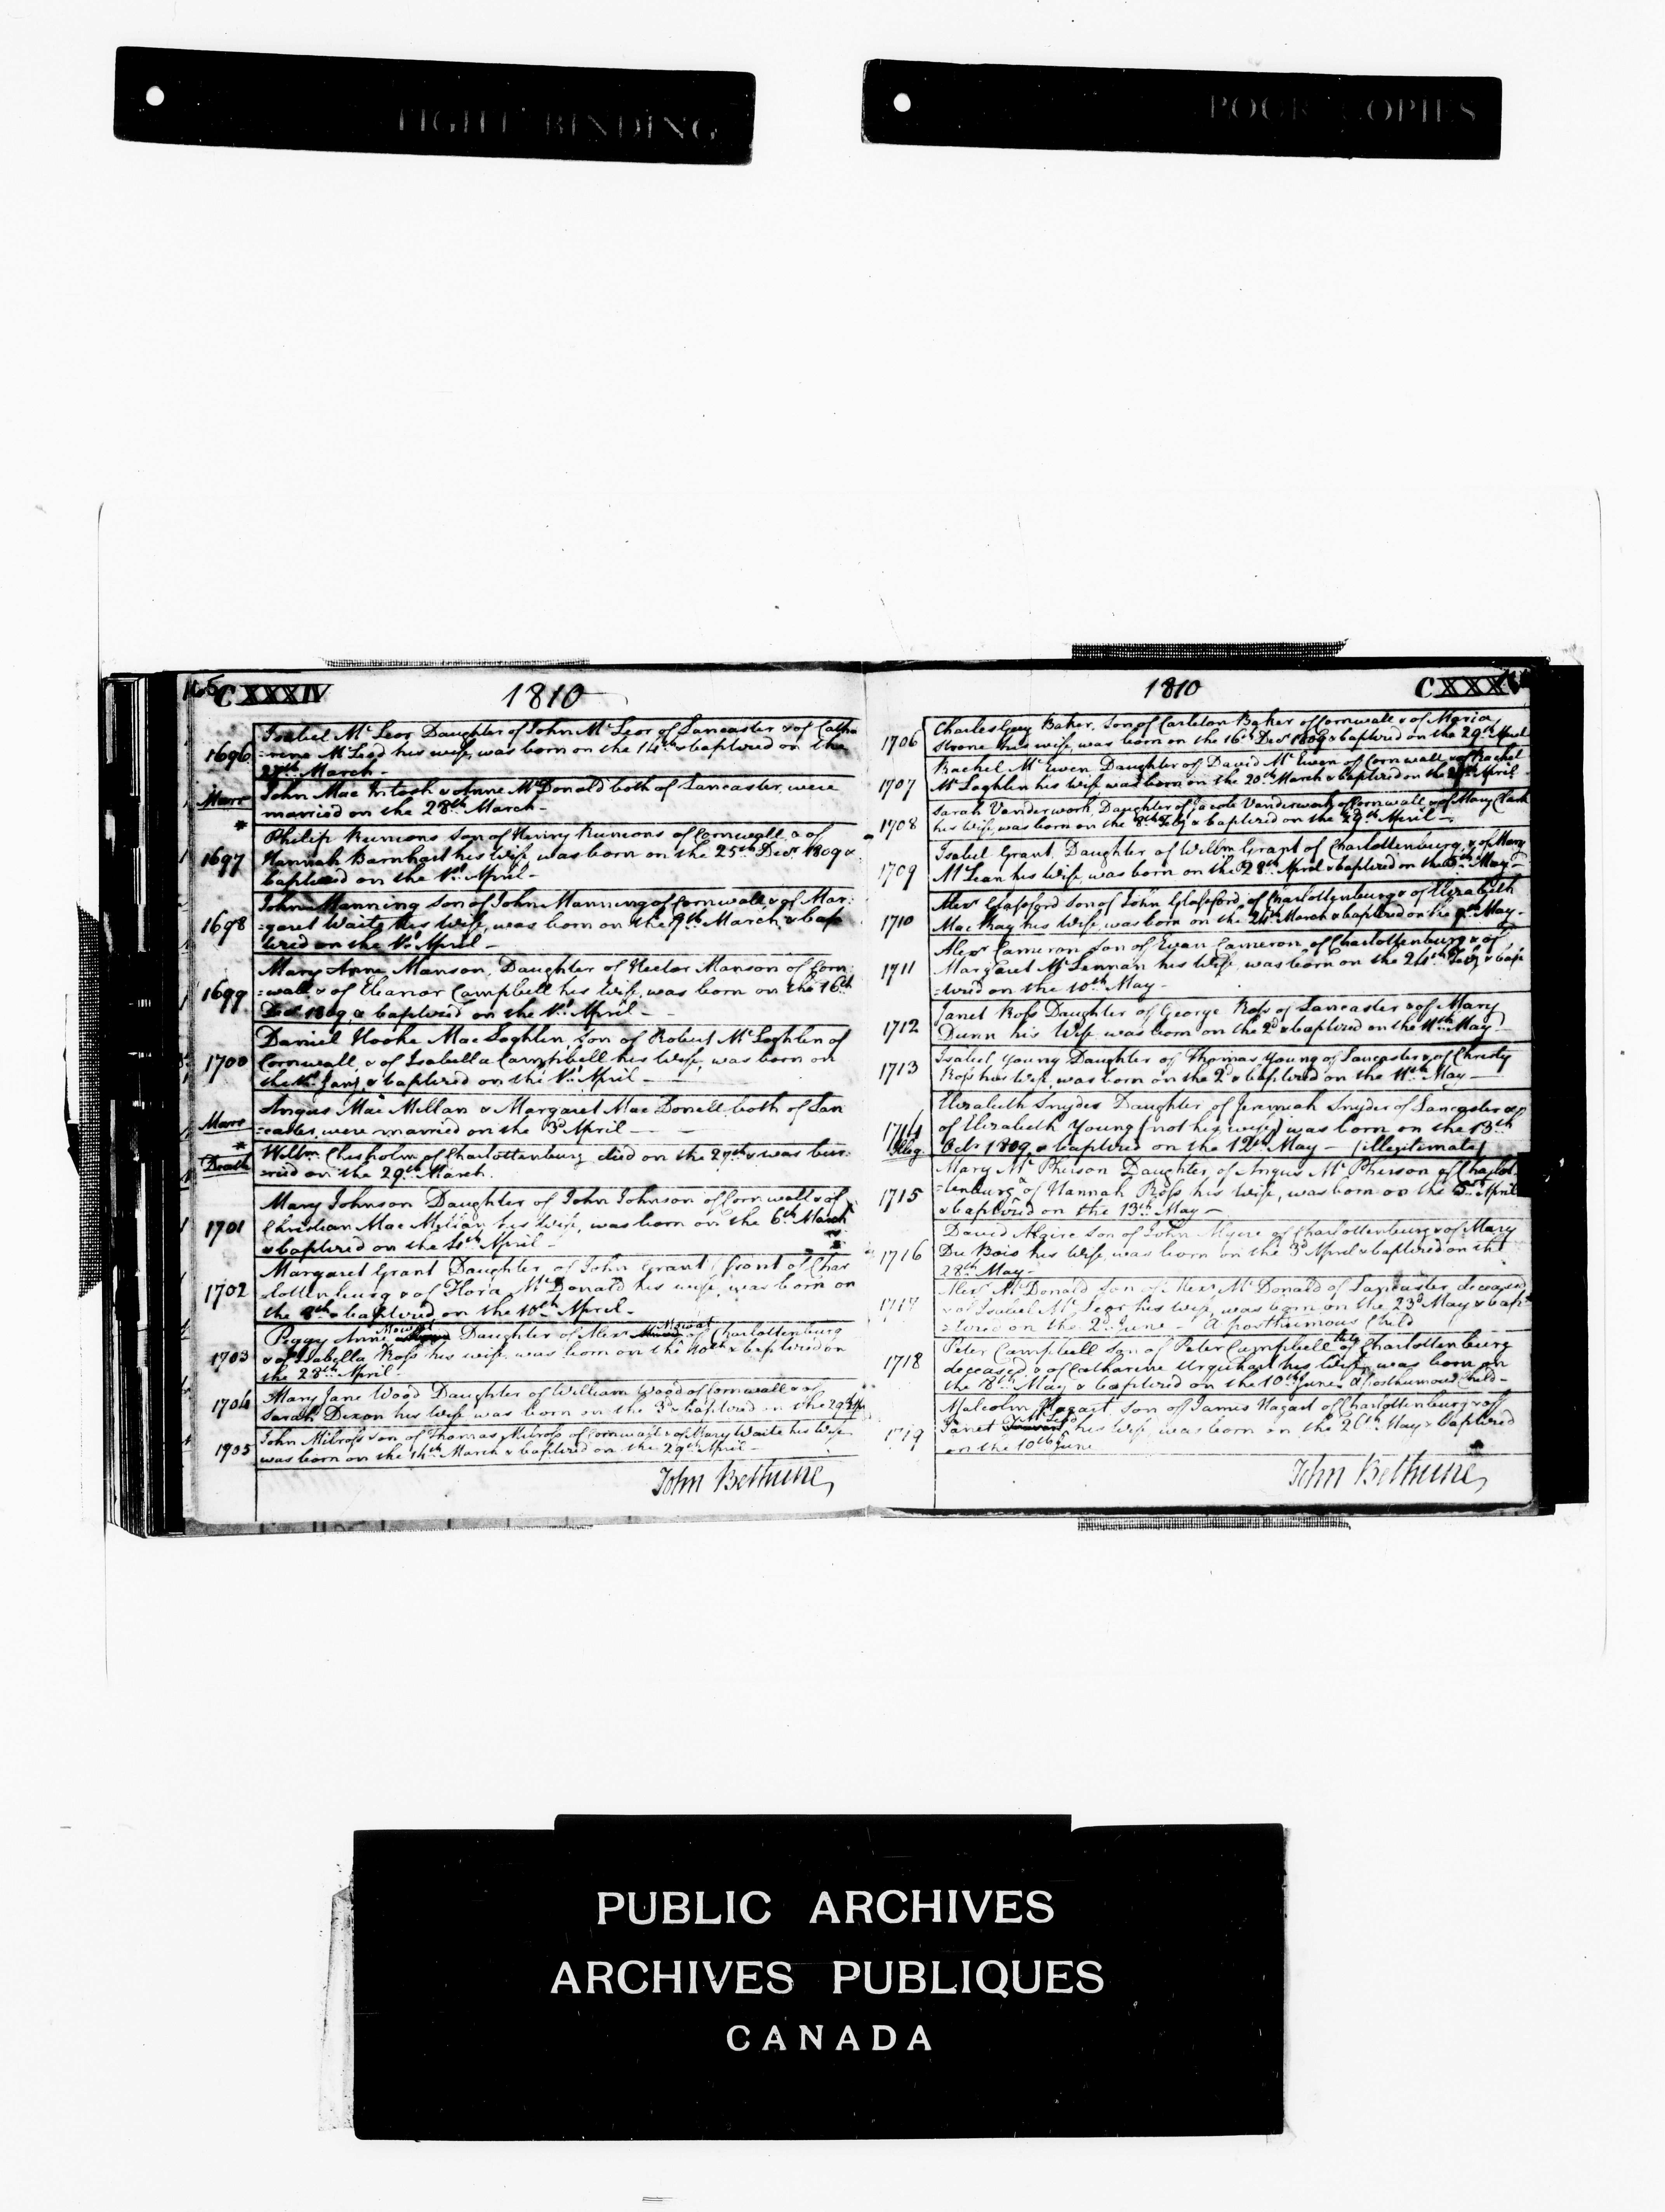 TIGHT BINDING
POOR COPIES
165
CXXXIV
1810
1696
Isabel McLeor Daughter of John McLeor of Lancaster & of Catha
=rine McLeod his wife, was born on the 14th & baptized on the
27th March -
Marr
John Mac Intosh & Anne McDonald both of Lancaster, were
married on the 28th March -
*
1697
Philip Runions Son of Henry Runions of Cornwall & of
Hannah Barnhart his Wife, was born on the 25th Decr 1809 &
baptized on the 1st April -
1698
John Manning Son of John Manning of Cornwall & of Mar:
=garet Waite his Wife, was born on the 9th March & bap
tized on the 1st April -
1699
Mary Anne Manson, Daughter of Hector Manson of Corn:
=wall & of Eleanor Campbell his Wife, was born on the 16th
Decr 1809 & baptized on the 1st April -
1700
Daniel Hooke Mac Loghlin, Son of Robert McLoghlin of
Cornwall, & of Isabella Campbell his Wife, was born on
the Jany & baptized on the 1st April -
Marr
Angus Mac Millan & Margaret Mac Donell both of Lan
=caster, were married on the 3d April -
*
Death
Willm Chisholm of Charlottenburg died on the 27th & was bur:
=ried on the 29th March.
1701
Mary Johnson Daughter of John Johnson of Cornwall & of
Christian Mac Millan his Wife, was born on the 6th March
& baptized on the 4th April -
1702
Margaret Grant Daughter of John Grant, front of Char
lottenburg & of Flora McDonald his wife, was born on
the 8th & baptized on the 10th April -
1703
Mowat Mowat
Peggy Anne Daughter of Alexr of Charlottenburg
& of Isabella Ross his wife, was born on the 10th & baptized on
the 28th April -
1704
Mary Jane Wood Daughter of William Wood of Cornwall & of
Sarah Dixon his Wife was born on the 3d & baptized on the 29th Apl
1905
John Milross son of Thomas Milross of Cornwall & of Mary Waite his Wife
was born on the 14th March & baptized on the 29th April -
John Bethune
1810
CXXXV
1706
Charles Gay Baker, Son of Carleton Baker of Cornwall & of Maria
Strone his wife, was born on the 16th Decr 1809 & baptized on the 29th April
1707
Rachel McEwen Daughter of David McEwen of Cornwall & of Rachel
McLoghlin his Wife was born on the 20th March & baptized on the 29th April
1708
Sarah Vanderwork, Daughter of Jacob Vanderwork of Cornwall & of Mary Clark
his Wife, was born on the 8th Feby & baptized on the 29th April -
1709
Isabel Grant, Daughter of Willm Grant of Charlottenburg, & of Mary
McLean his Wife, was born on the 28th April & baptized on the 5th May -
1710
Alexr Glassford Son of John Glassford, of Charlottenburg & of Elizabeth
Mac Kay his Wife, was born on the 24th March & baptized on the May -
1711
Alexr Cameron Son of Evan Cameron of Charlottenburg & of
Margaret McLennan his Wife, was born on the 24th Feby & bap
=tized on the 10th May -
1712
Janet Ross Daughter of George Ross of Lancaster & of Mary
Dunn his Wife was born on the 2d & baptized on the 11th May -
1713
Isabel Young Daughter of Thomas Young of Lancaster & of Christy
Ross his Wife, was born on the 2d & baptized on the 11th May -
1714
Illeg
Elizabeth Snyder Daughter of Jeremiah Snyder of Lancaster &
of Elizabeth Young (not his wife) was born on the 13th
Octr 1809, & baptized on the 12th May - (illegitimate)
1715
Mary McPherson Daughter of Angus McPherson of Charlot
=tenburg & of Hannah Ross his wife, was born on the 5th April
& baptized on the 13th May -
1716
David Algire Son of John Algire of Charlottenburg & of Mary
Du Bois his Wife was born on the 3d April & baptized on the
28th May -
1717
Alexr McDonald Son of Alexr McDonald of Lancaster, deceased
& of Isabel McLeor his wife, was born on the 23d May & bap:
=tized on the 2d June - A posthumous Child
1718
late
Peter Campbell Son of Peter Campbell of Charlottenburg
deceased & of Catharine Urquhart his Wife, was born on
the 18th May & baptized on the 10th June. A posthumous Child -
1719
Malcolm Hagart Son of James Hagart of Charlottenburg & of
Janet his Wife, was born on the 26th May & baptized
on the 10th June
John Bethune
PUBLIC ARCHIVES
ARCHIVES PUBLIQUES
CANADA